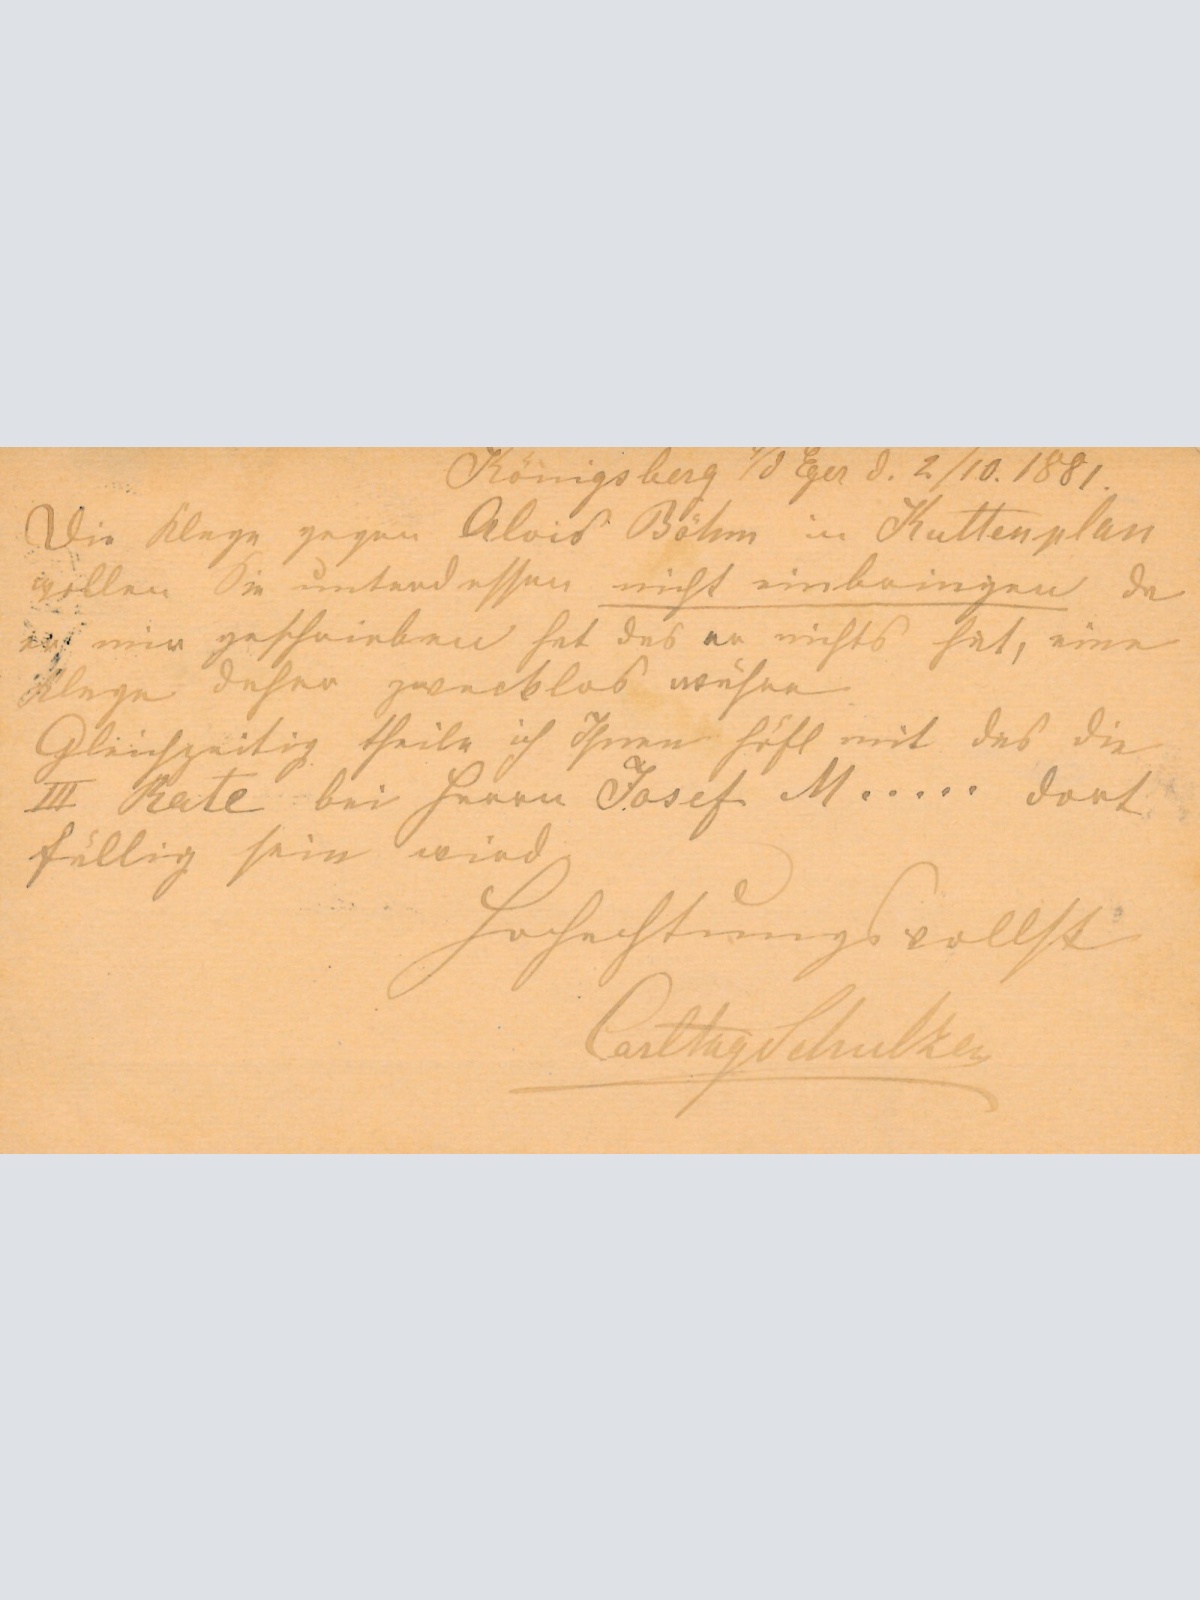 Königsberg a/d Eger d. 2/10. 1881.
Die Klage gegen Alois Böhm in Kuttenplan
wollen Sie unterdessen nicht einbringen da
er mir geschrieben hat das er nichts hat, eine
Klage daher zwecklos währe
Gleichzeitig theile ich Ihnen höfl mit das die
III Rate bei Herrn Josef M..... dort
fällig sein wird
Hochachtungsvollst